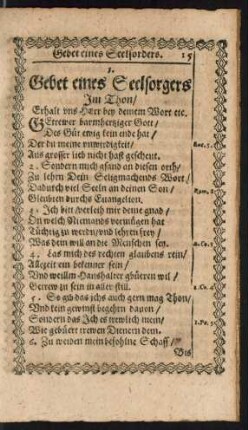 Gebet eines Seelsorgers. 15
1.
Gebet eines Seelsorgers
Im Thon/
Erhalt vns Herr bey deinem Wort etc.
GEtrewer barmherziger Gott/
Des Güt ewig kein ende hat/
Der du meine vnwirdigkeit/
Aus grosser lieb nicht hast gescheut.
2. Sondern mich gsand an diesen orth/
Zu lehrn Dein Seligmachends Wort/
Dadurch viel Seeln an deinen Son/
Gleubten durchs Euangelion.
3. Ich bitt/verleih mir deine gnad/
Dn welch Niemands vermügen hat
Tüchtig zu werdn/vnd lehren frey/
Was dein will an die Menschen sey.
4. Las mich des rechten glaubens rein/
Allzeit ein bekenner sein/
Vnd weilln Haushalter gbüeren wil/
Getrew zu sein in aller still.
5. So gib das ichs auch gern mag Thon/
Vnd kein gewinst begehrn dauon/
Sondern das Ich es trewlich mein/
Wie gebürt trewen Dienern dein.
6. Zu weiden mein befohlne Schaff/
Bis